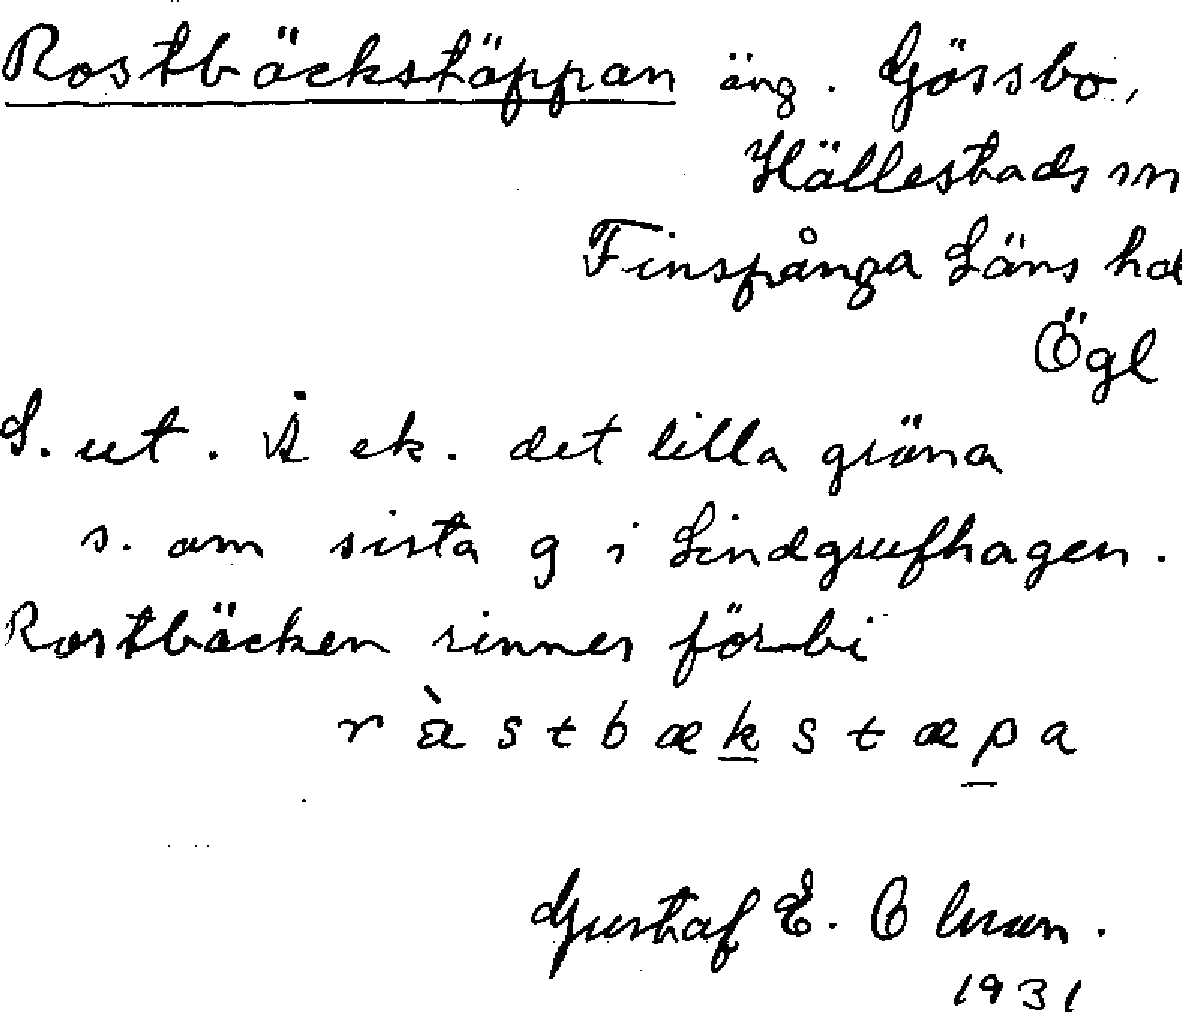 Rostbäckstäppan äng. Görsbo,
Hällestads sn
Finspånga Läns hd
Ögl
S. ut. Å ek. det lilla gröna
s. om sista g i Lindgrufhagen.
Rostbäcken rinner förbi
r à s t b æ k s t æ p a
Gustaf E.
1931